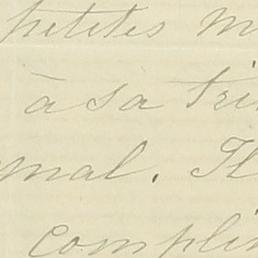 petites m
à sa tri
gnal. Il
compli